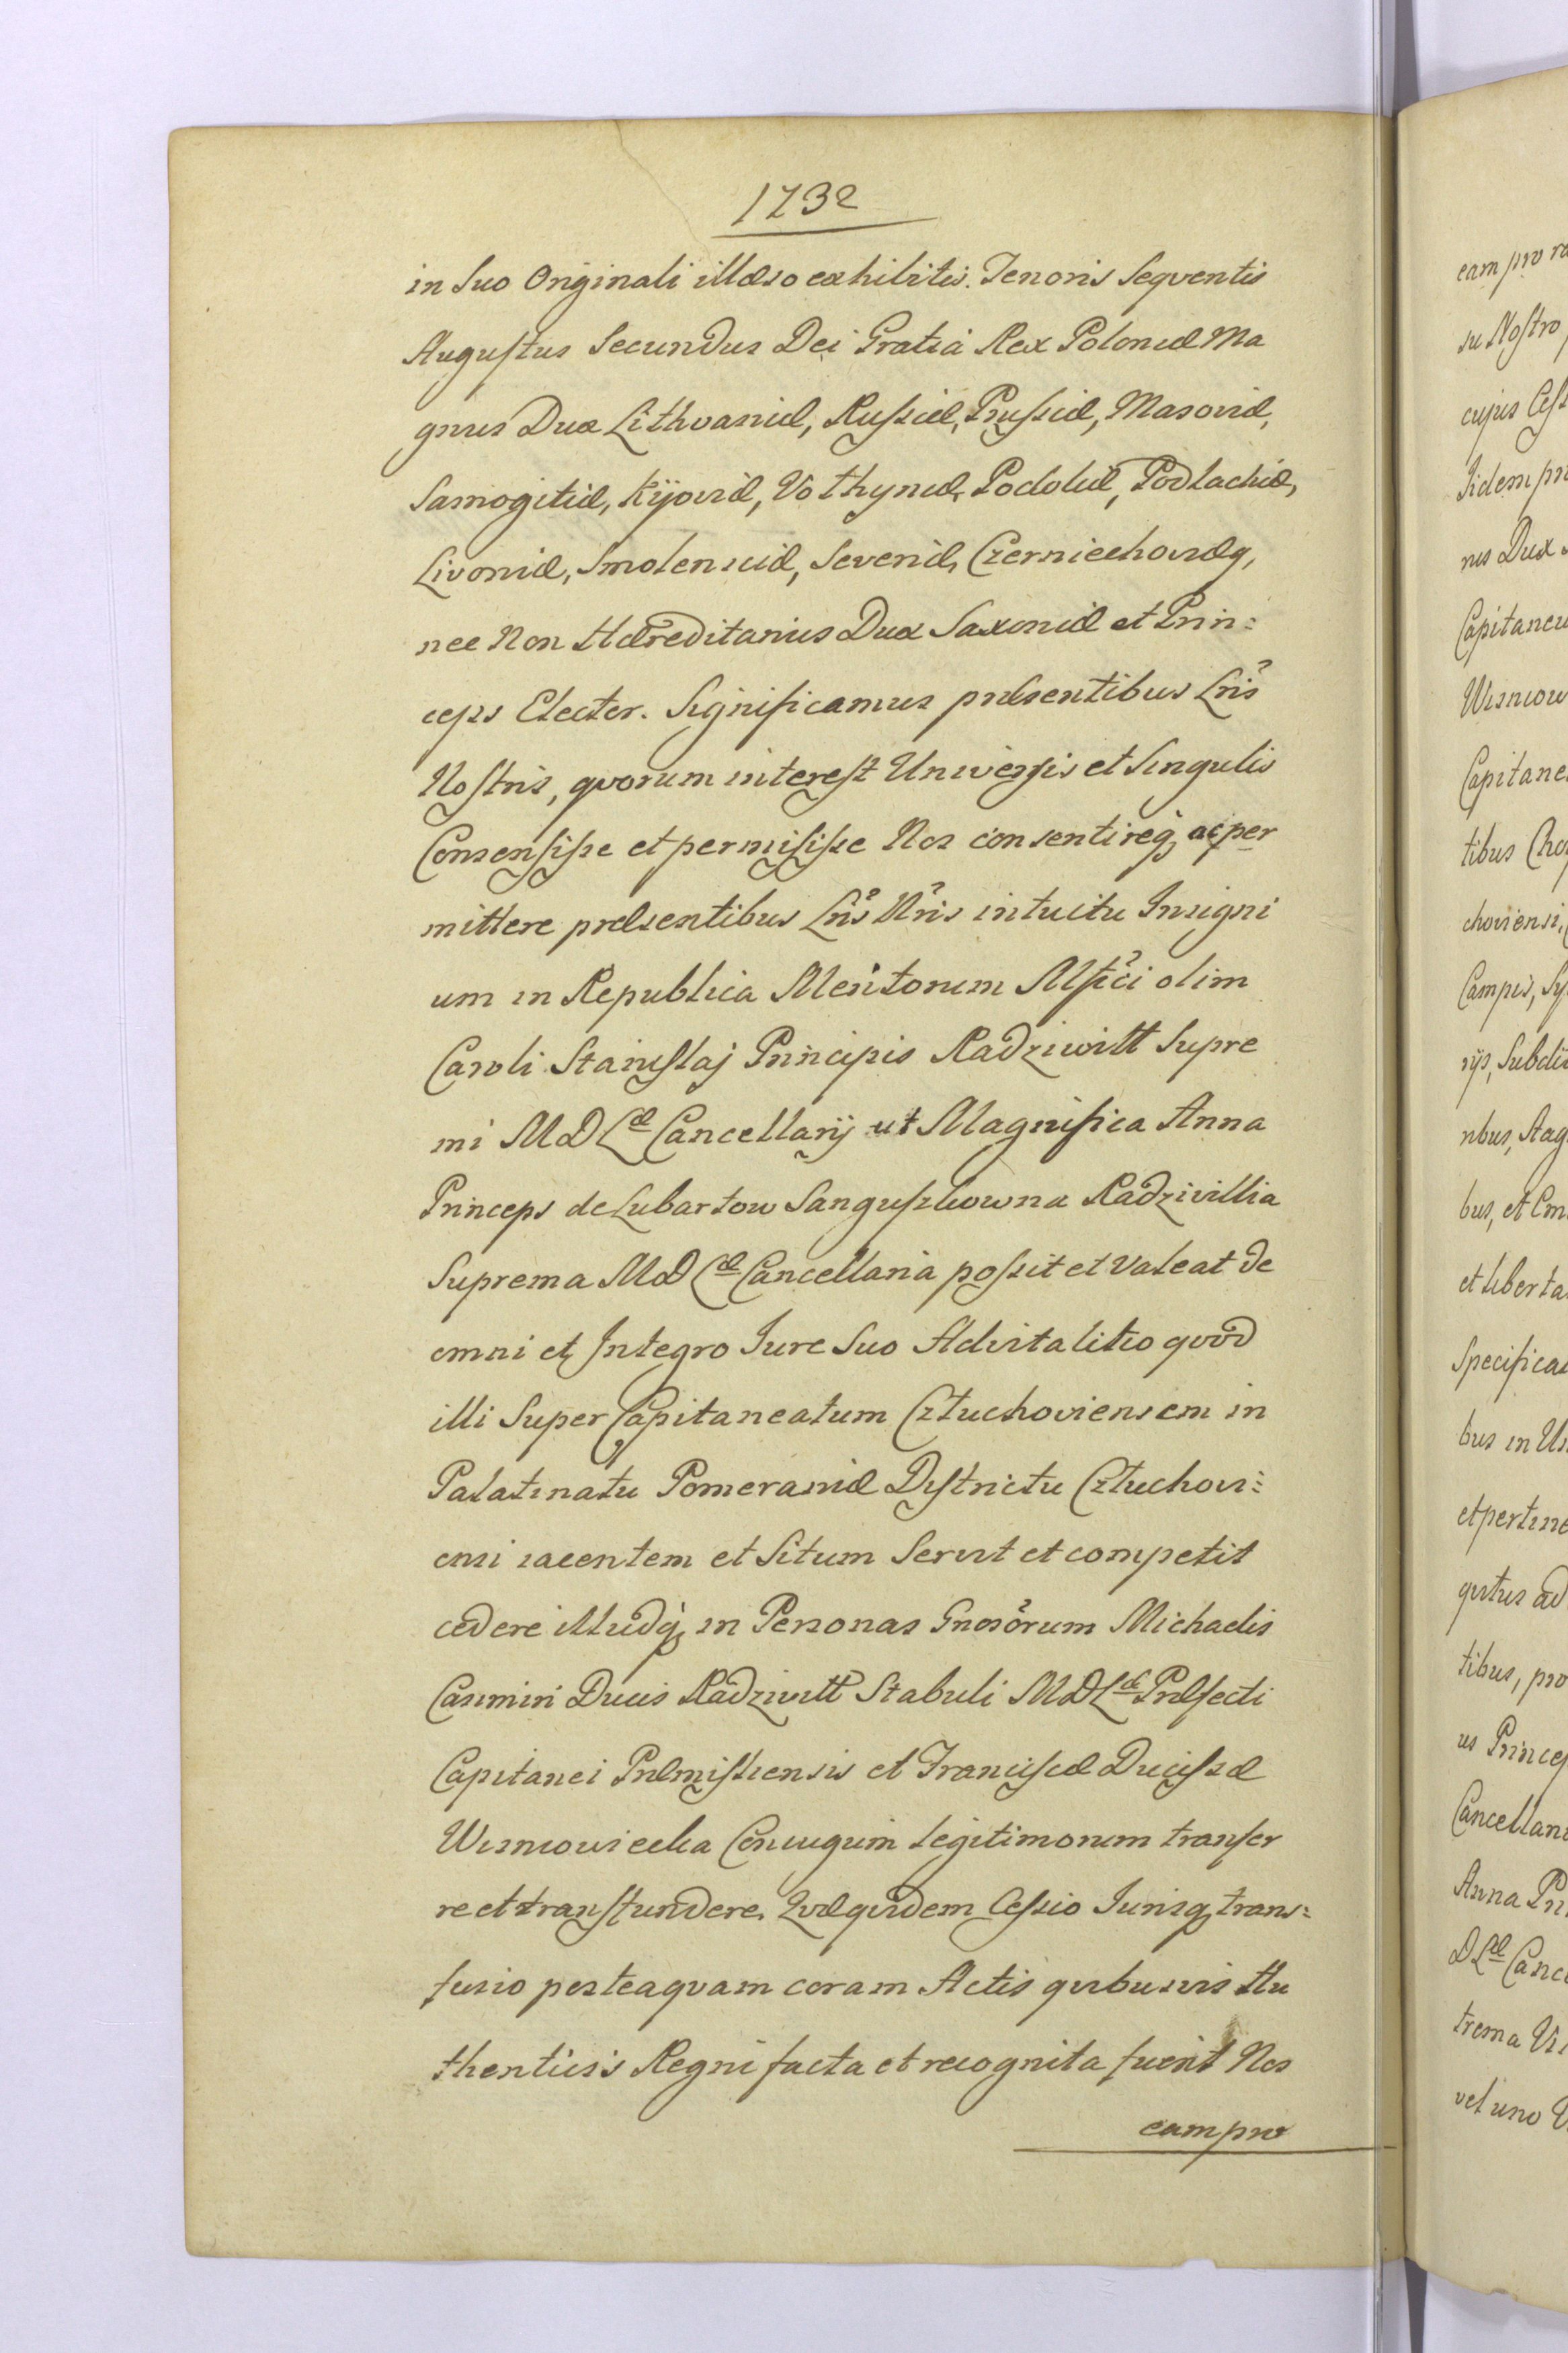 1732
in Suo Originali illæso exhibitis. Tenoris Seqventis
Augustus Secundus Dei Gratiá Rex Poloniæ Ma
gnus Dux Lithvaniæ, Russiæ, Prussiæ, Masoviæ,
Samogitiæ, Kijoviæ, Volhyniæ, Podoliæ, Podlachiæ,
Livoniæ, Smolensciæ, Severiæ, Czerniechoviæq,
nec Non Hæreditarius Dux Saxoniæ et Prin:
ceps Elector. Significamus præsentibus Lris
Nostris, qvorum interest Universis et Singulis
Consensisse et permisisse Nos consentireq, ac per
mittere præsentibus Lris Nris intuitu Insigni
um in Republica Meritorum Mfici olim
Caroli Stanislaj Principis Radziwiłł Supre
mi MDLæ Cancellarij ut Magnifica Anna
Princeps de Lubartow Sanguszkowna Radziwillia
Suprema MDLæ Cancellaria possit et Valeat de
omni et Integro Iure Suo Advitalitio qvod
illi Super Capitaneatum Człuchoviensem in
Palatinatu Pomeraniæ Districtu Człuchovi:
ensi iacentem et Situm Servit et competit
cedere illudq, in Personas Gnosorum Michaelis
Casimiri Ducis Radziwiłł Stabuli MDLæ Præfecti
Capitanei Præmisliensis et Franciscæ Ducissæ
Wisniowiecka Coniugum legitimorum transfer
re et transfundere. Qvæ qvidem Cessio Iurisq, trans:
fusio posteaqvam coram Actis qvibusvis Au
thenticis Regni facta et recognita fuerit Nos
eam pro
eam pro ra
su Nostro
cujus Cess
Iidem pri
nus Dux
Capitaneu
Wisniow
Capitane
tibus
choviensi,
Campis, Sy
rijs, Subdi
ribus, Stag
bus, et Em
et liberta
Specifica
bus in Un
et pertine
qvitus ad
tibus, pro
us Princep
Cancellari
Anna Pri
DLæ Canc
trema Vi
vel uno V